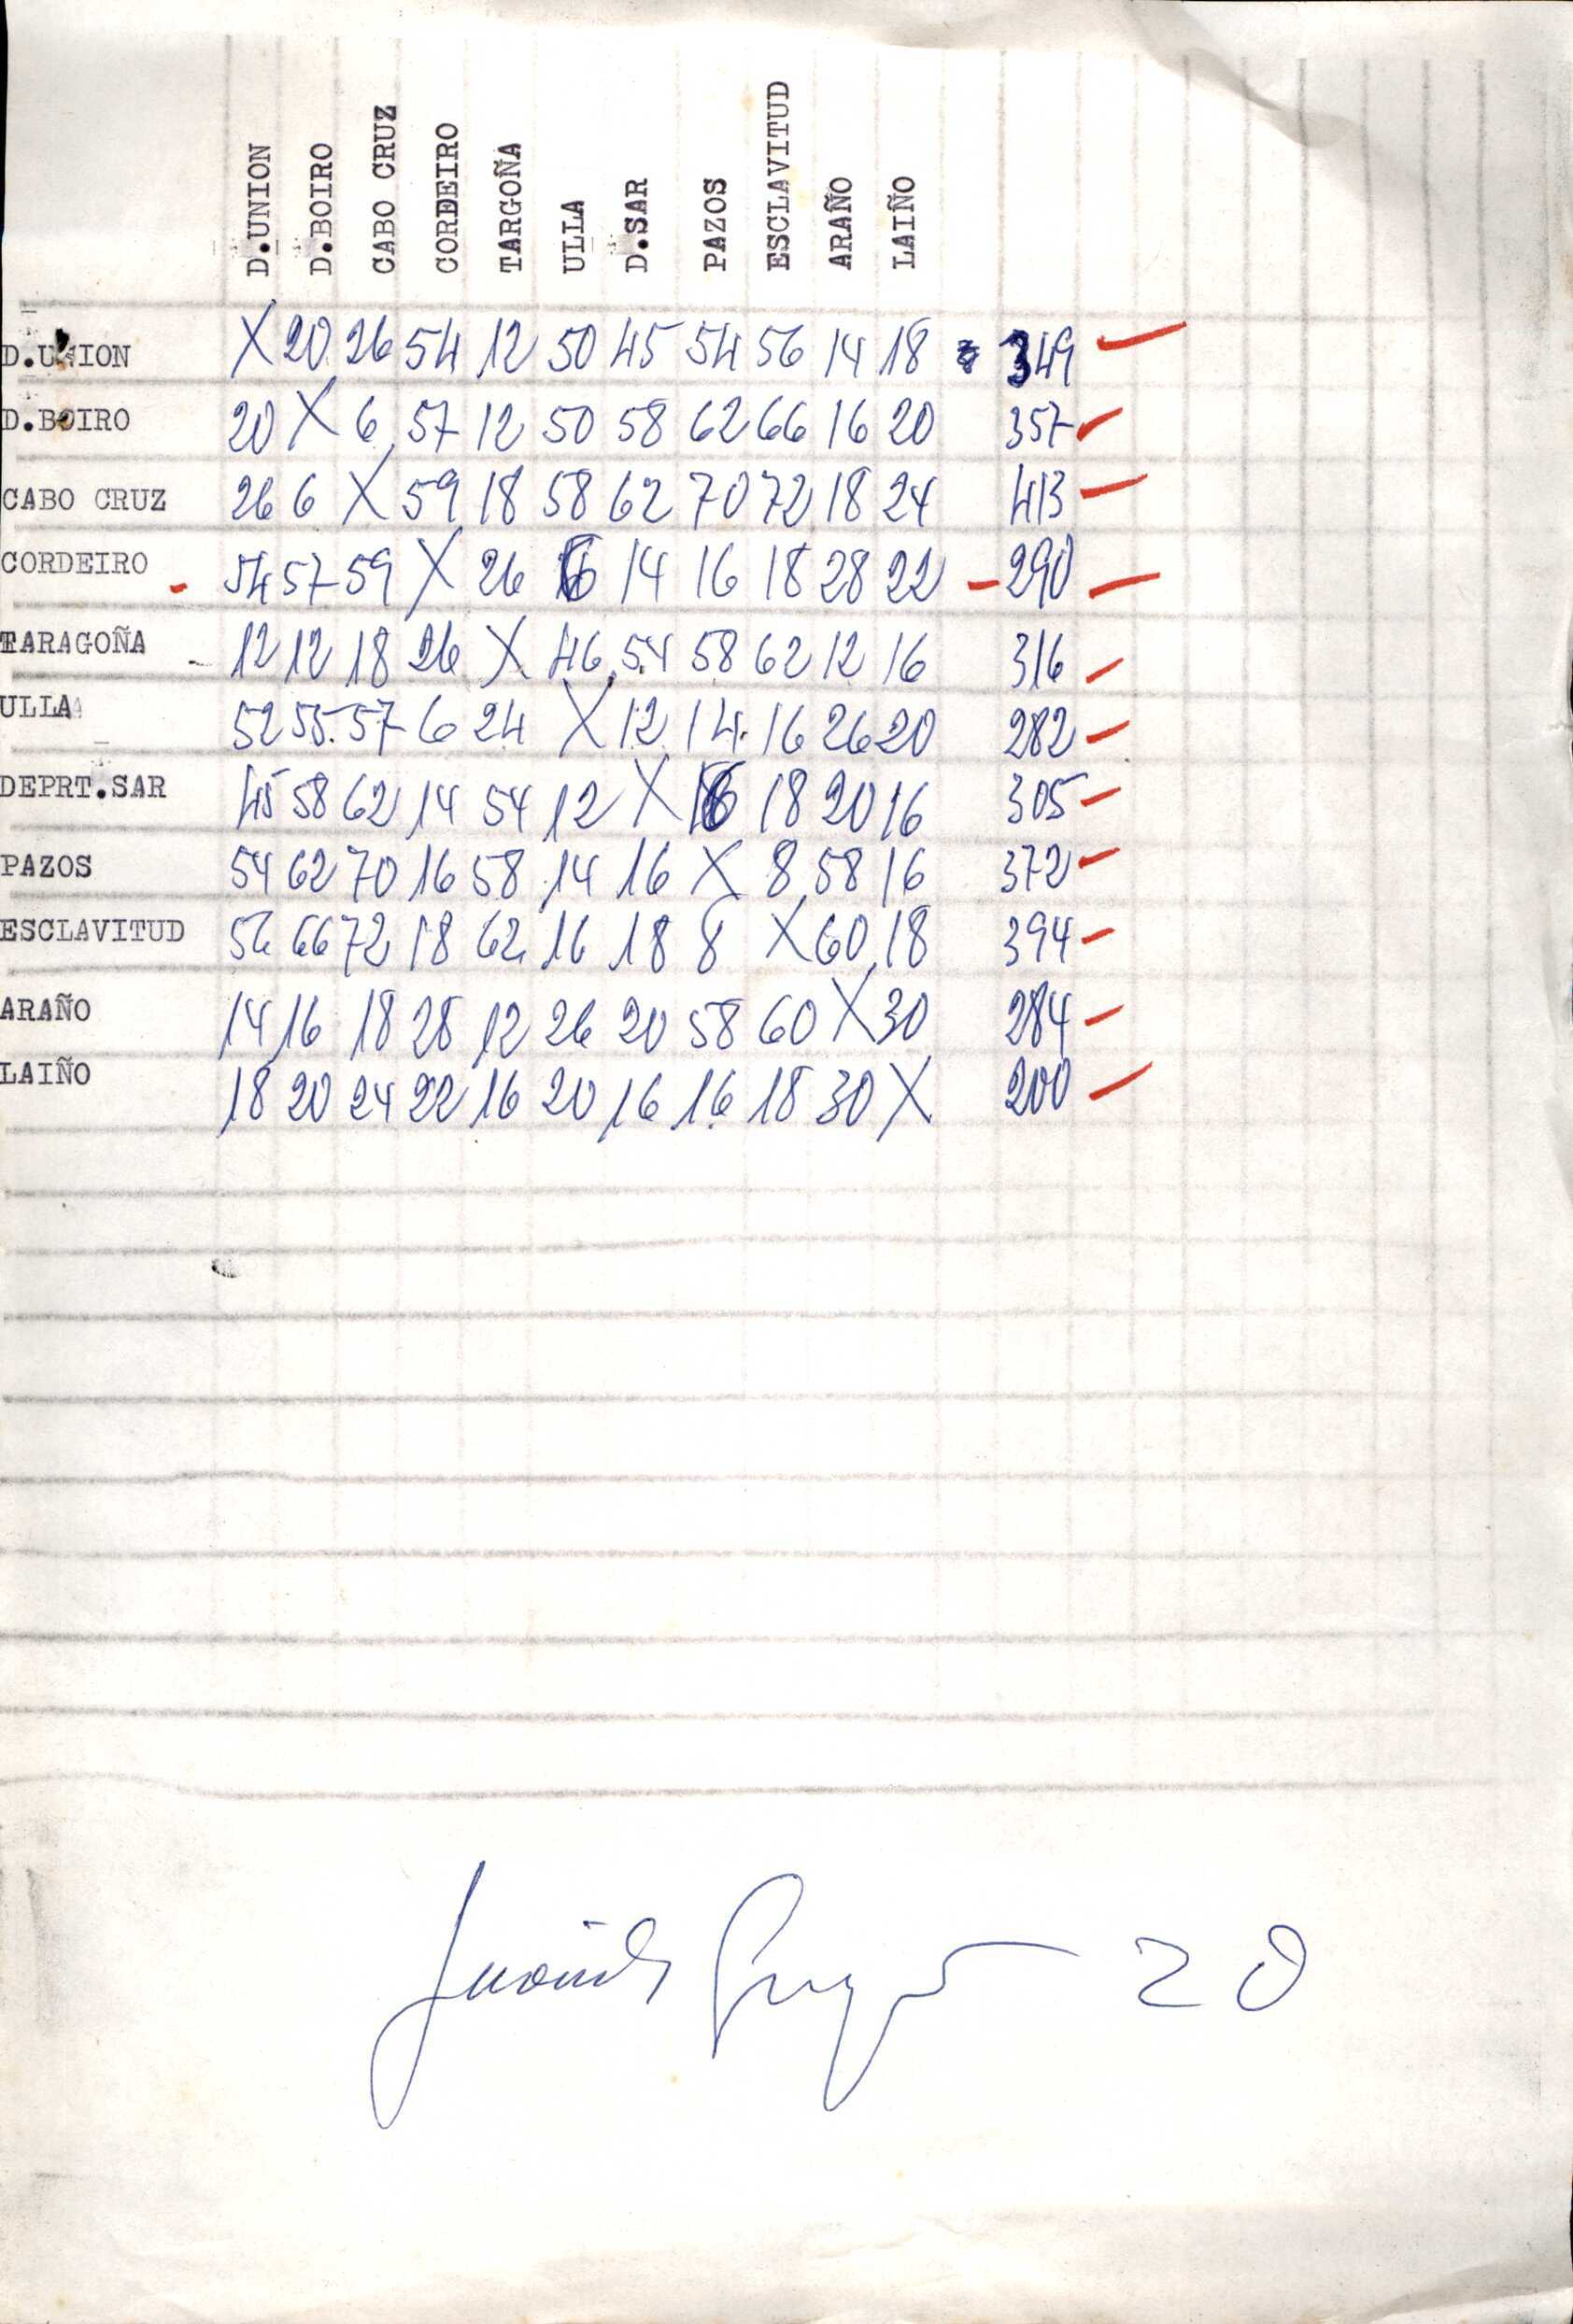 D.UNION D.BOIRO CABO CRUZ CORDEIRO TARGOÑA ULLA D.SAR PAZOS ESCLAVITUD ARAÑO LAIÑO
D.UNION X 20 26 54 12 50 45 54 56 14 18 349
D.BOIRO 20 X 6 57 12 50 58 62 66 16 20 357
CABO CRUZ 26 6 X 59 18 58 62 70 72 18 24 413
CORDEIRO 54 57 59 X 26 6 14 16 18 28 22 290
TARAGOÑA 12 12 18 26 X 46 54 58 62 12 16 316
ULLA 52 55 57 6 24 X 12 14 16 26 20 282
DEPRT.SAR 45 58 62 14 54 12 X 16 18 20 16 305
PAZOS 54 62 70 16 58 14 16 X 8 58 16 372
ESCLAVITUD 56 66 72 18 62 16 18 8 X 60 18 394
ARAÑO 14 16 18 28 12 26 20 58 60 X 30 284
LAIÑO 18 20 24 22 16 20 16 16 18 30 X 200
20